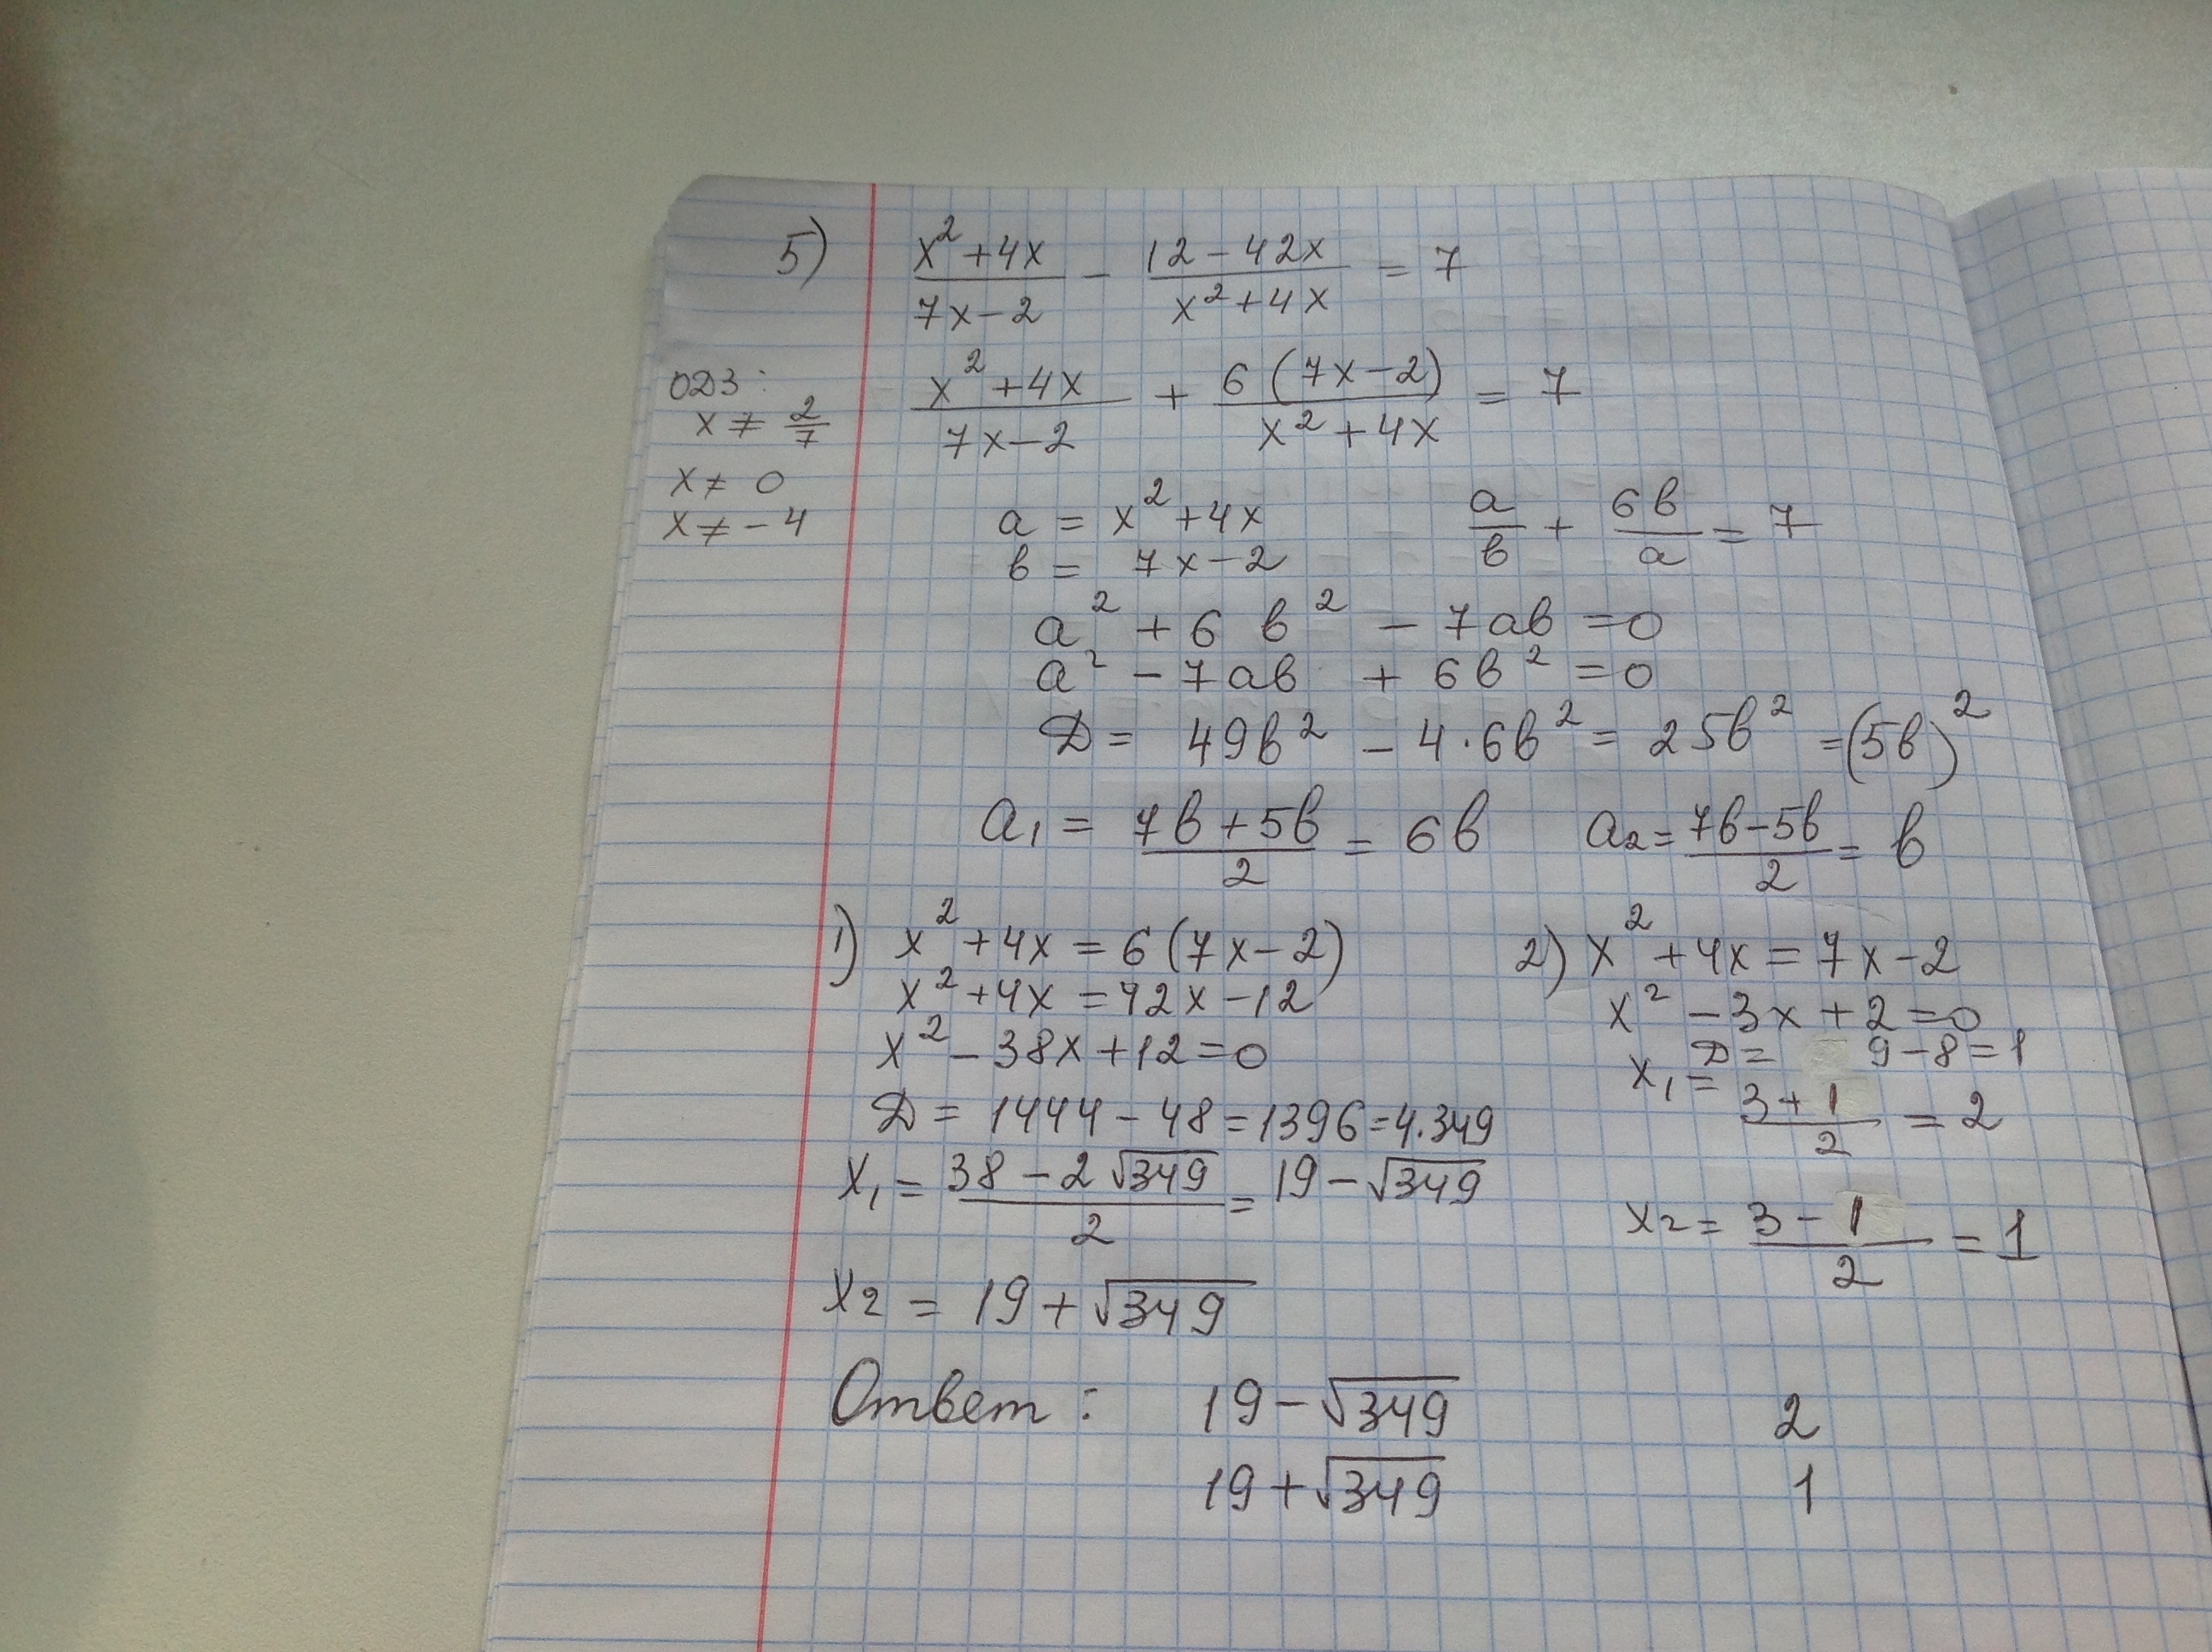 5) (x² + 4x)/(7x − 2) − (12 − 42x)/(x² + 4x) = 7
ОДЗ: x ≠ 2/7
x ≠ 0
x ≠ −4
(x² + 4x)/(7x − 2) + 6(7x − 2)/(x² + 4x) = 7
a = x² + 4x
в = 7x − 2
a/в + 6в/a = 7
a² + 6 в² − 7aв = 0
a² − 7aв + 6в² = 0
D = 49в² − 4·6в² = 25в² = (5в)²
a₁ = (7в + 5в)/2 = 6в
a₂ = (7в − 5в)/2 = в
1) x² + 4x = 6(7x − 2)
x² + 4x = 42x − 12
x² − 38x + 12 = 0
D = 1444 − 48 = 1396 = 4·349
x₁ = (38 − 2√349)/2 = 19 − √349
x₂ = 19 + √349
2) x² + 4x = 7x − 2
x² − 3x + 2 = 0
D = 9 − 8 = 1
x₁ = (3 + 1)/2 = 2
x₂ = (3 − 1)/2 = 1
Ответ: 19 − √349 2
19 + √349 1